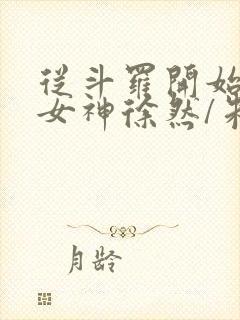 從斗羅開始
女神徐然/朱
月龄